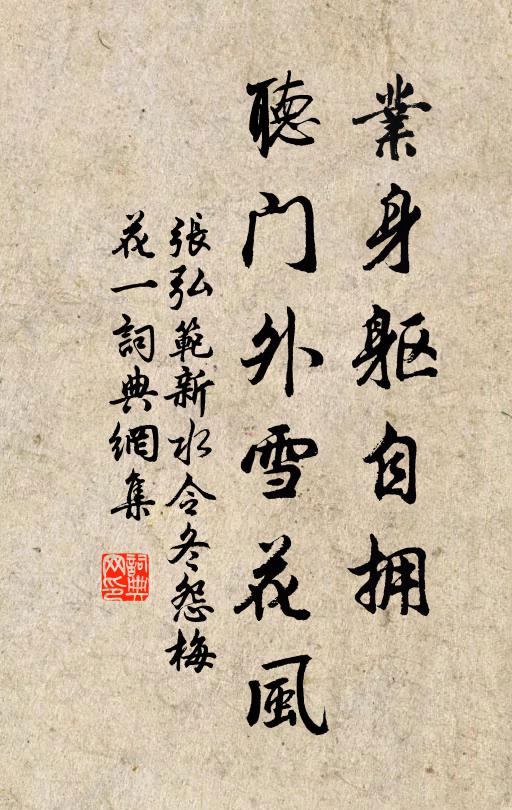 業身軀自拥
聽门外雪花風
張弘範新水令冬怨梅
花一詞典網集
詞典
网印